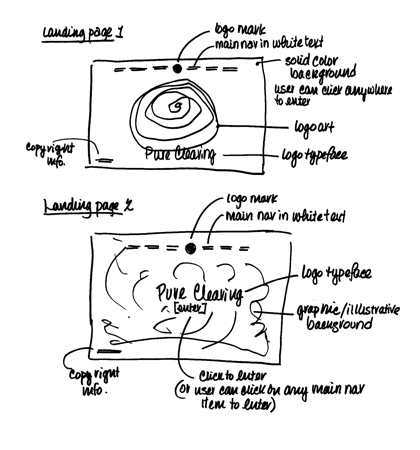 Landing page 1
logo mark
main nav in white text
solid color
background
user can click anywhere
to enter
logo art
Pure Clearing
logo typeface
copyright
info.
Landing page 2
logo mark
main nav in white text
logo typeface
Pure Clearing
[enter]
graphic/illustrative
background
copyright
info.
click to enter
(or user can click on any main nav
item to enter)